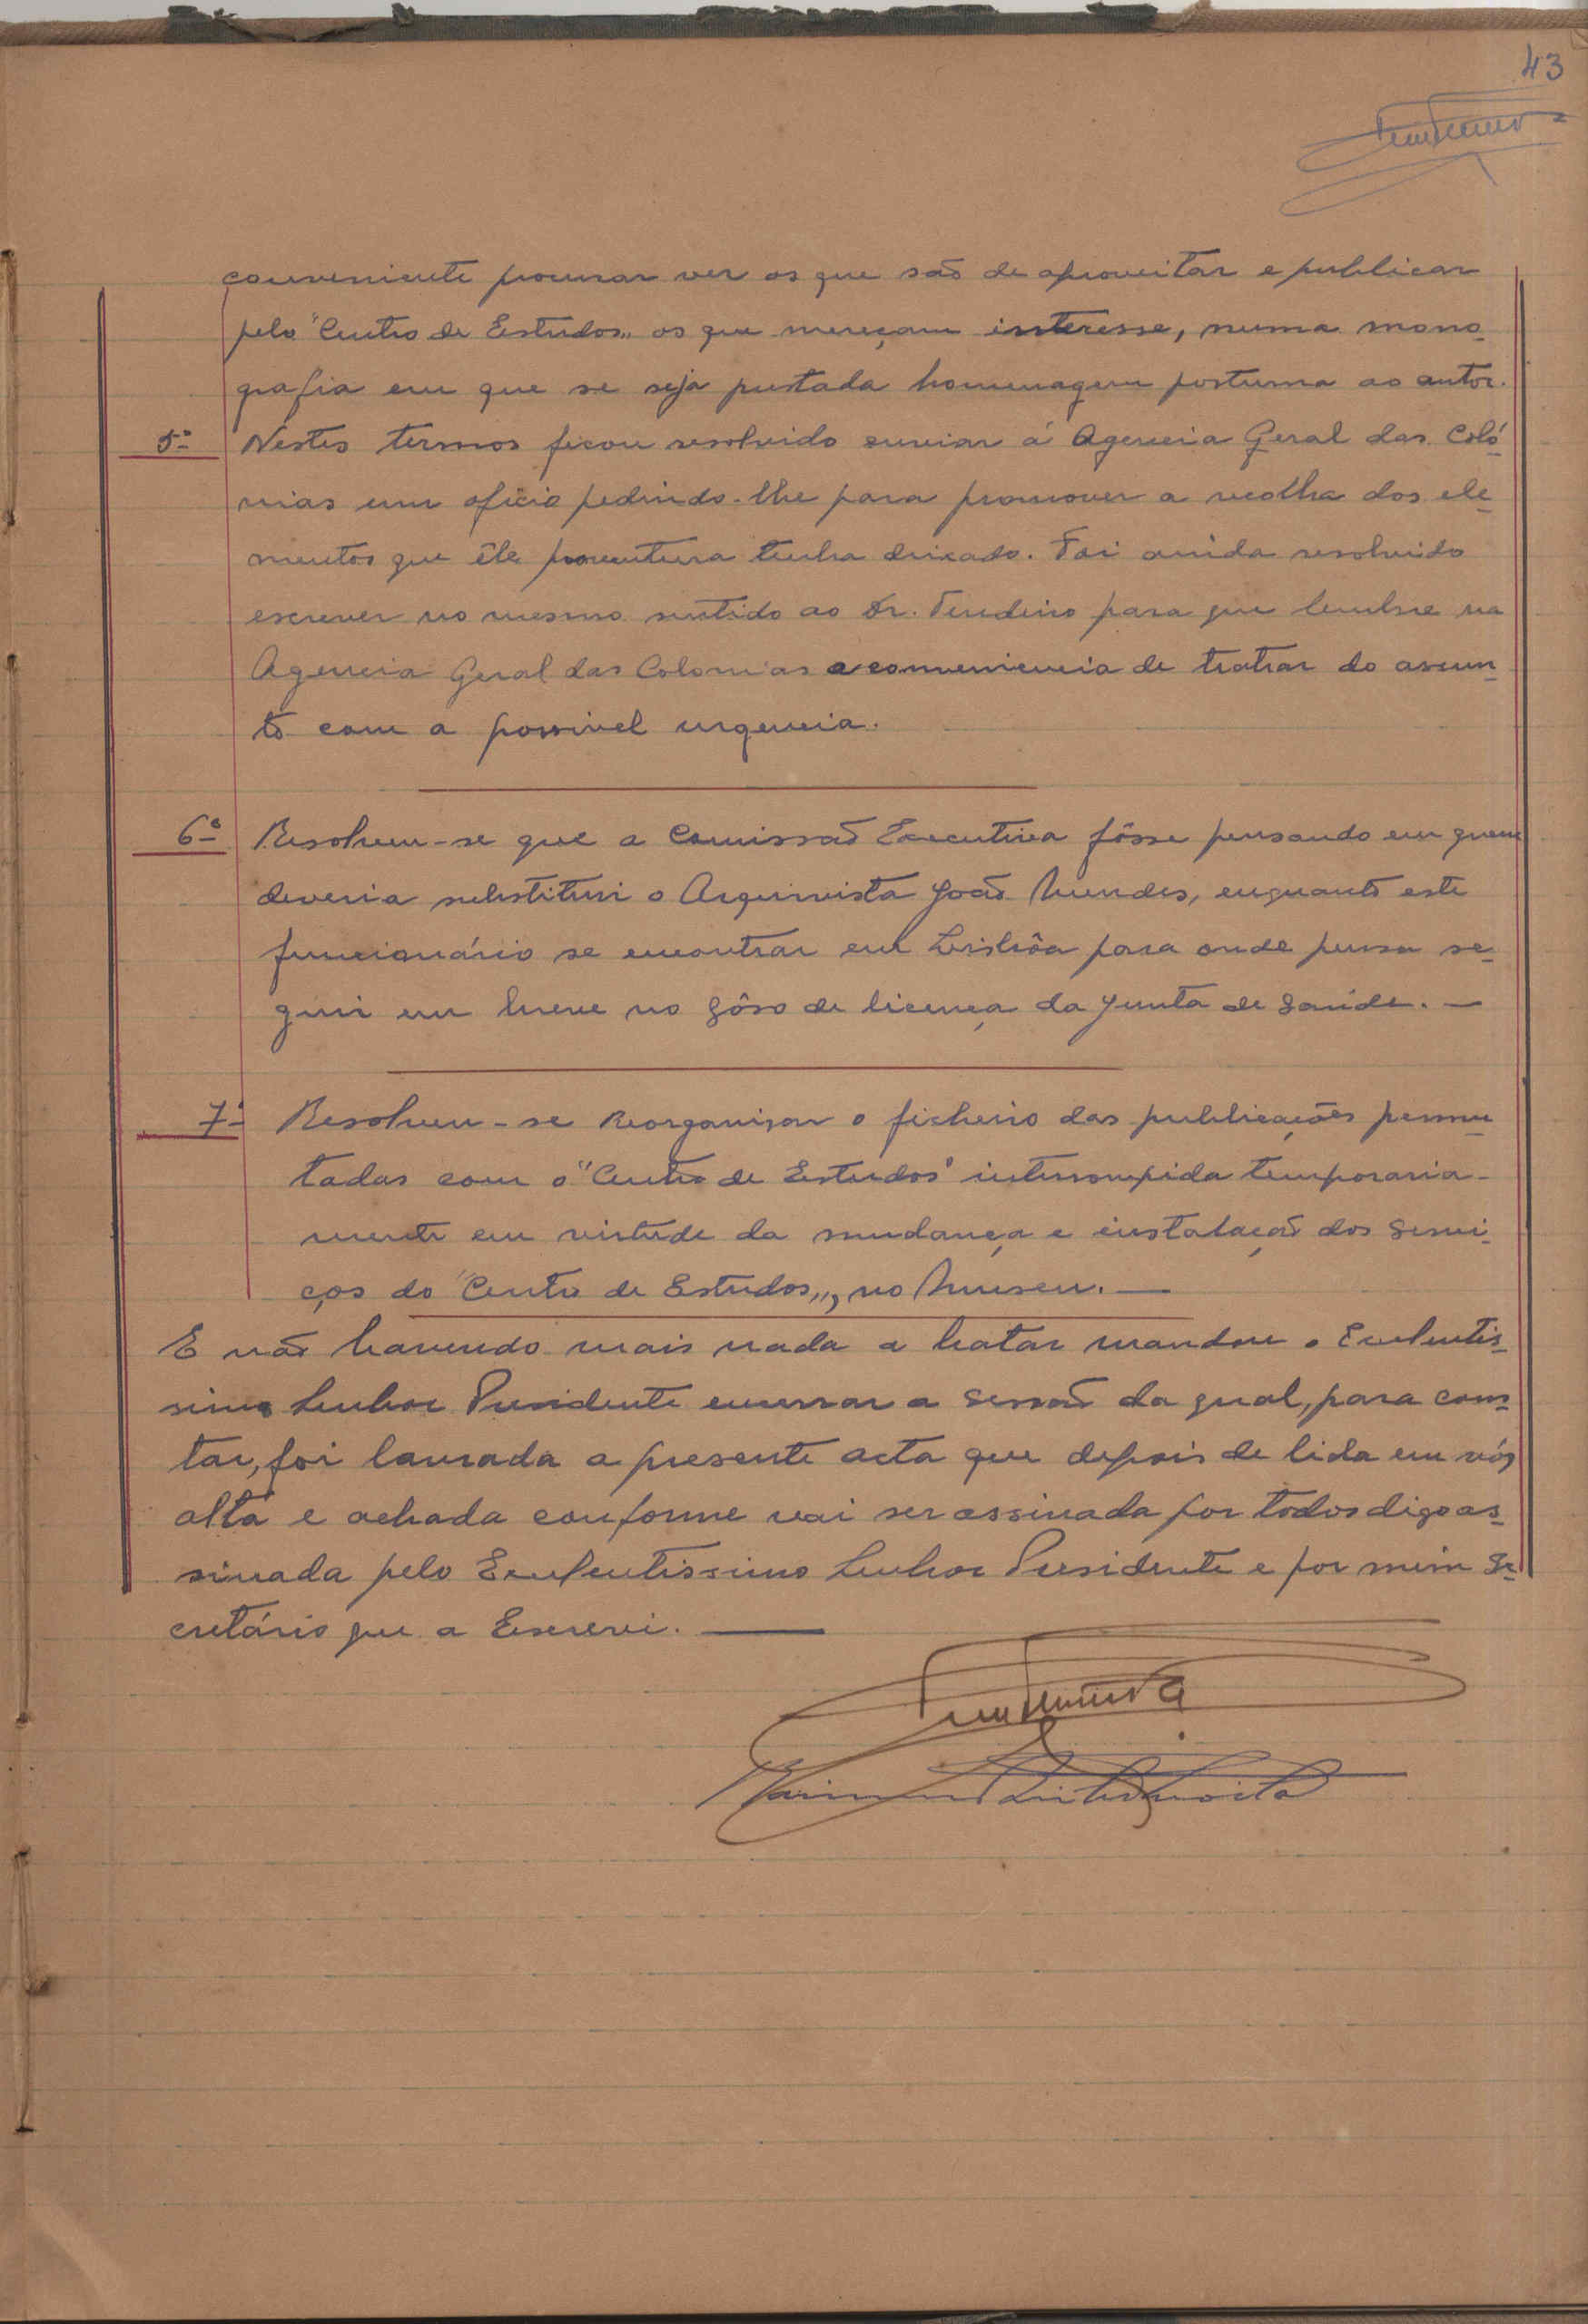 43
conveniente procurar ver os que são de aproveitar e publicar
pelo "Centro de Estudos" os que mereçam interesse, numa mono-
grafia em que se seja prestada homenagem postuma ao autor.
5º Nestes termos ficou resolvido enviar á Agencia Geral das Coló-
nias um oficio pedindo-lhe para promover a recolha dos ele-
mentos que êle porventura tenha deixado. Foi ainda resolvido
escrever no mesmo sentido ao Dr. Tendeiro para que lembre na
Agencia Geral das Colonias a conveniencia de tratar do assun-
to com a possivel urgencia.
6º Resolveu-se que a Comissão Executiva fôsse pensando em quem
deveria substituir o Arquivista João Mendes, enquanto este
funcionário se encontrar em Lisbôa para onde pensa se-
guir em breve no gôso de licença da Junta de Saúde. —
7º Resolveu-se Reorganizar o ficheiro das publicações permu-
tadas com o "Centro de Estudos" interrompida temporaria-
mente em virtude da mudança e instalação dos Servi-
ços do "Centro de Estudos", no Museu. —
E não havendo mais nada a tratar mandou o Excelentis-
simo Senhor Presidente encerrar a sessão da qual, para cons-
tar, foi lavrada a presente acta que depois de lida em vóz
alta e achada conforme vai ser assinada por todos digo as-
sinada pelo Excelentissimo Senhor Presidente e por mim Se-
cretário que a Escrevi. —